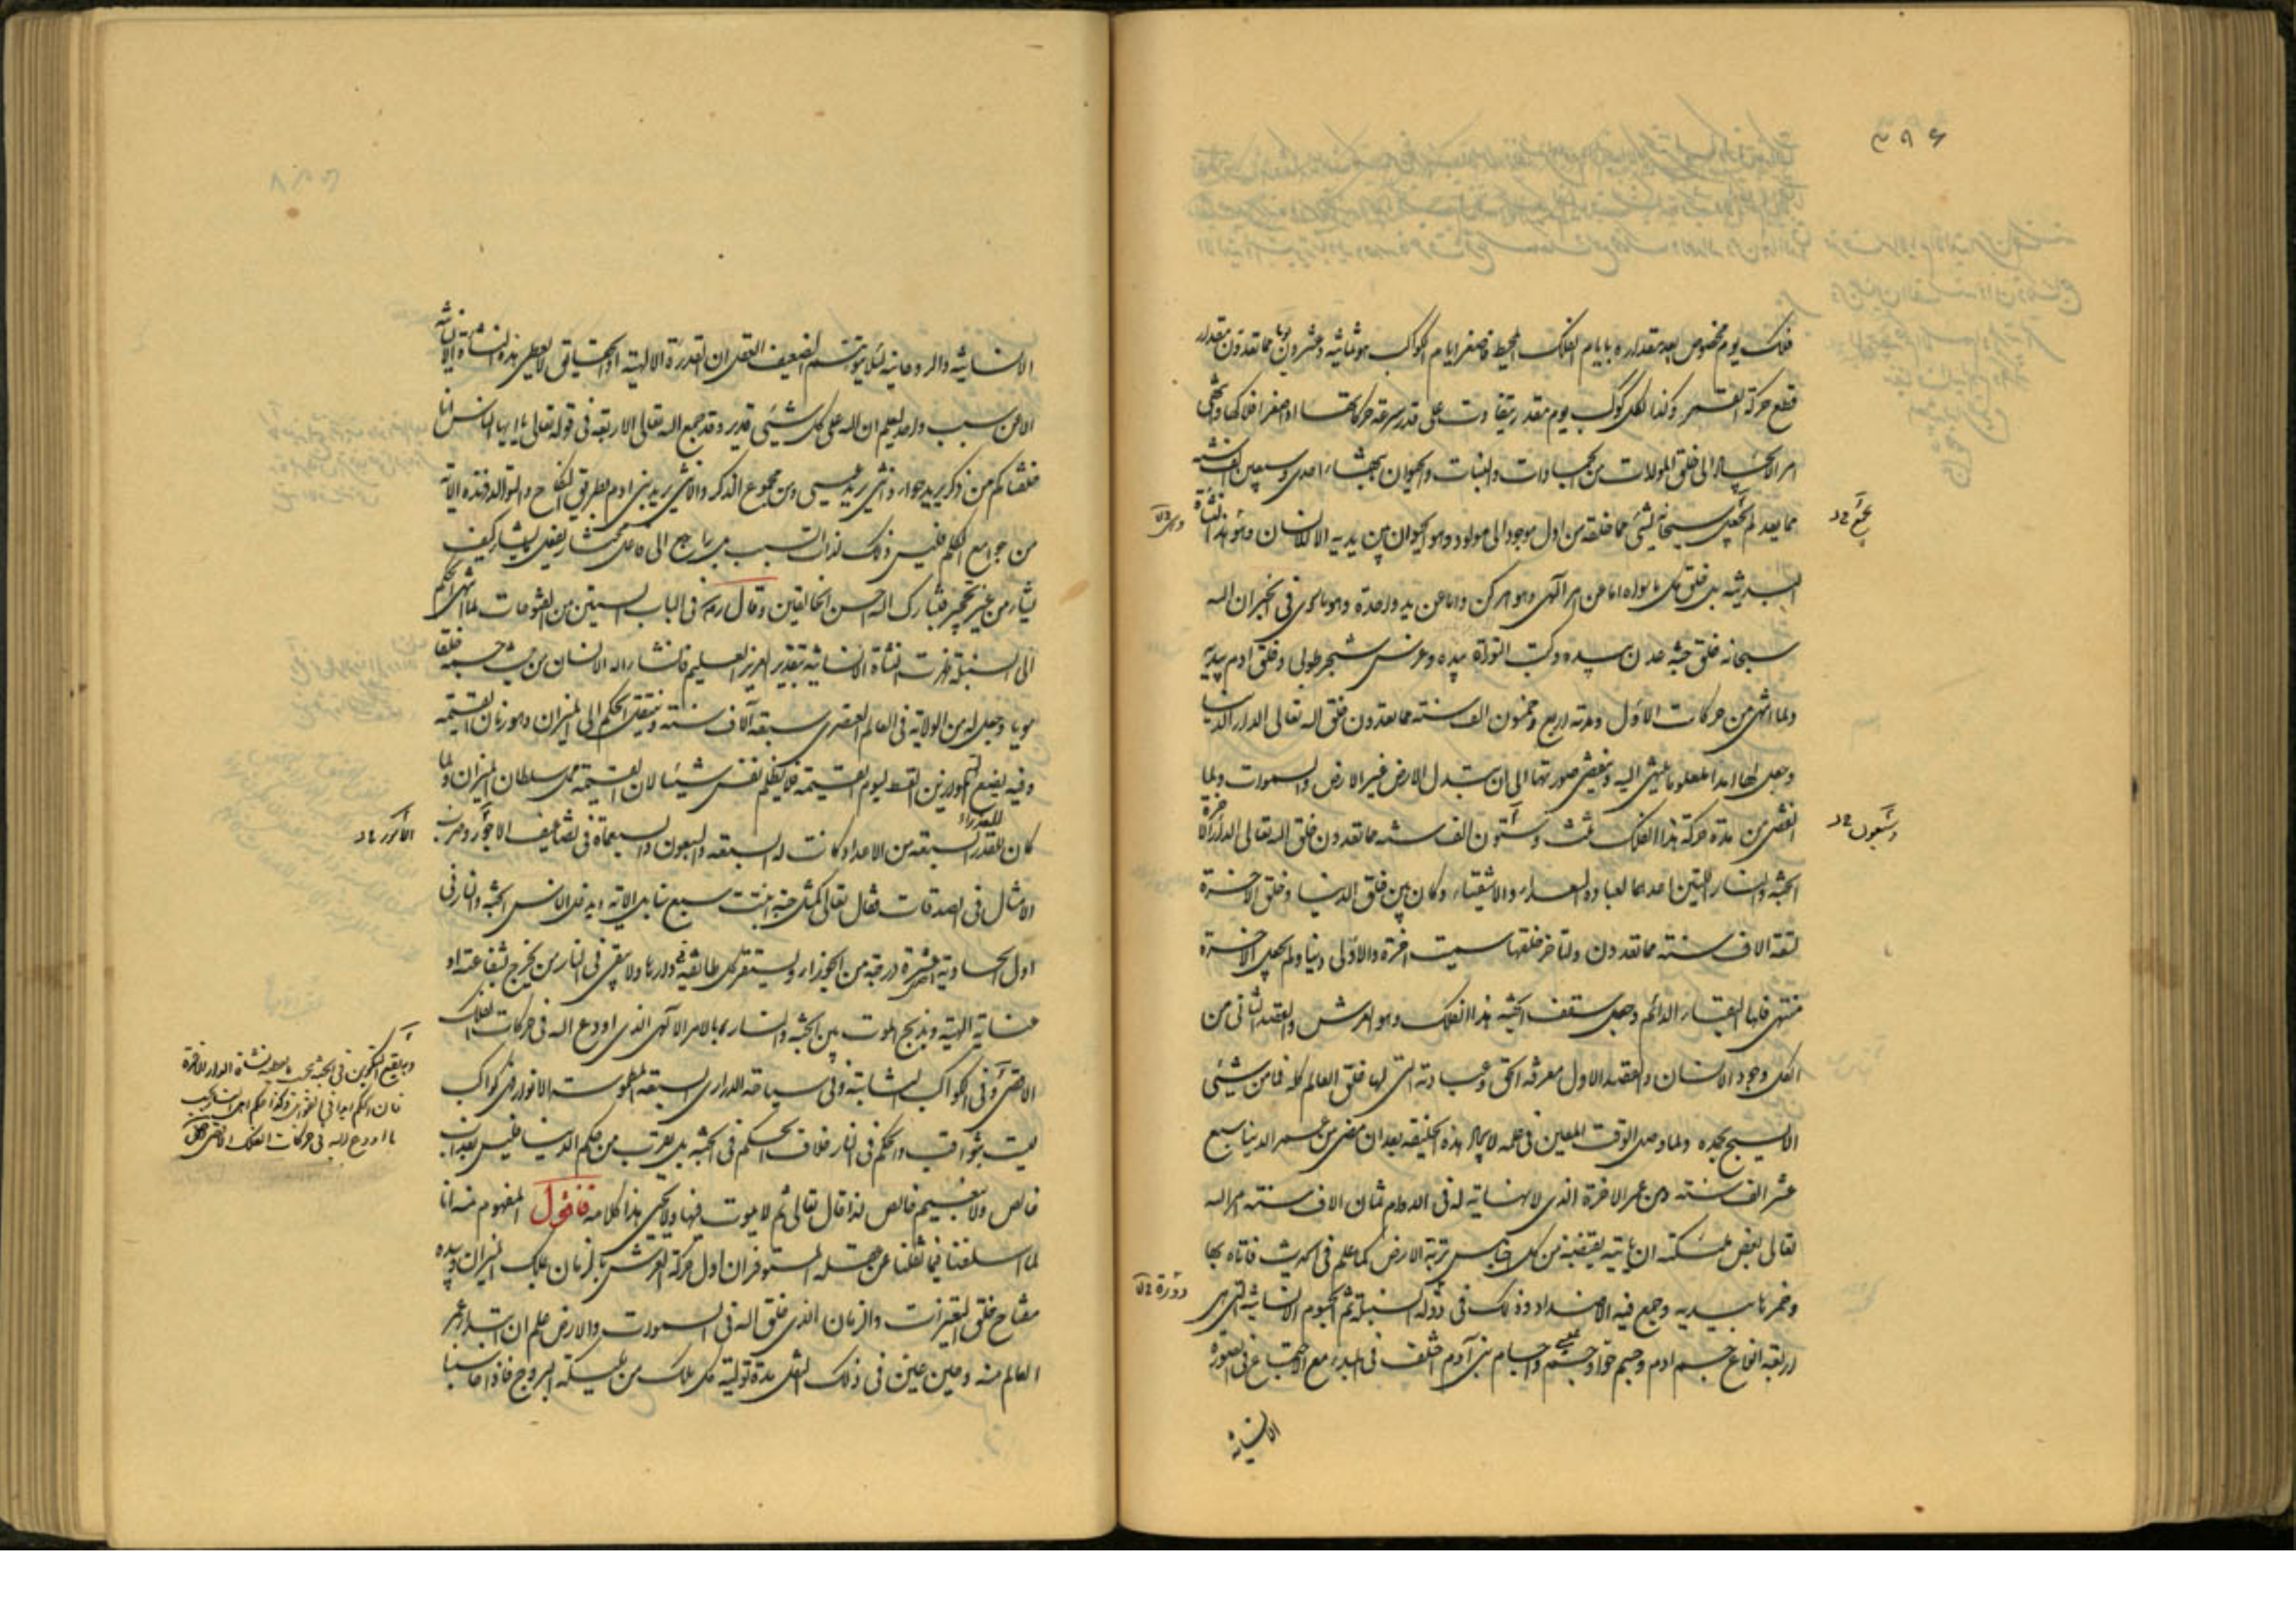 فلك يوم مخصوص يعد مقداره بايام الفلك المحيط فاصغر ايام الكواكب هو ثمانية وعشرون يوما مما تعدون مقدار
قطع حركة القمر وكذا لكل كوكب يوم مقدر يتفاوت على قدر سرعة حركاتها او صغر افلاكها وينتهى
امر الاجسام الى خلق المولدات من الجمادات والنبات والحيوان بانتهاء احدى وسبعين الف سنة
مما يعد لم يجعل سبحانه لشئ مما خلقه من اول موجود الى مولود وهو الحيوان بين يديه الا للانسان وهو هذه النشأة
البدنية بل خلق كل ما سواه اما عن امر الهى وهو امر كن واما عن يد واحدة وهو ما جرى فى الخبر ان الله
سبحانه خلق جنة عدن بيده وكتب التوراة بيده وغرس شجر طوبى وخلق ادم بيديه
ولما انتهى من حركات الاول ومدته اربع وخمسون الف سنة مما تعدون خلق الله تعالى الدار الدنيا
وجعل لها امدا معلوما تنتهى اليه وتنقضى صورتها الى ان تبدل الارض غير الارض والسموات ولما
انقضى من مدة حركة هذا الفلك ثلث وستون الف سنة مما تعدون خلق الله تعالى الدار الاخرة
الجنة والنار اللتين اعدهما لعباده السعداء والاشقياء وكان بين خلق الدنيا وخلق الاخرة
تسعة الاف سنة مما تعدون ولتأخر خلقها سميت اخرة والاولى دنيا ولم يجعل للاخرة
منتهى فلها البقاء الدائم وجعل سقف الجنة هذا الفلك وهو العرش والقصد الثانى من
الكل وجود الانسان والقصد الاول معرفة الحق وعبادته التى لها خلق العالم كله فما من شئ
الا يسبح بحمده ولما وصل الوقت المعين فى علمه لايجاد هذه الخليفة بعد ان مضى من عمر الدنيا سبع
عشر الف سنة ومن عمر الاخرة الذى لا نهاية له فى الدوام ثمان الاف سنة امر الله
تعالى بعض ملئكته ان يأتيه بقبضة من كل اجناس تربة الارض كما علم فى الحديث فاتاه بها
وخمرها بيديه وجمع فيه الاضداد وذلك فى دولة السنبلة ثم الجسوم الانسانية التى هى
اربعة انواع جسم ادم وجسم حوا وجسم عيسى واجسام بنى آدم اختلف فى المبدء مع الاجتماع فى الصورة
الانسانية
وستعون
دورة
الانسانية والروحانية لئلا يتوهم الضعيف العقل ان القدرة الالهية او الحقايق لا يعطى هذه النشأة الانسانية
الا عن سبب واحد ليعلم ان الله على كل شئ قدير وقد جمع الله تعالى الاربعة فى قوله تعالى يا ايها الناس انا
خلقناكم من ذكر يريد حواء وانثى يريد عيسى ومن مجموع الذكر والانثى يريد بنى ادم بطريق النكاح والتوالد فهذه الاية
من جوامع الكلم فليس ذلك لذات السبب بل راجع الى فاعل مختار يفعل ما يشاء كيف
يشاء من غير تحجير فتبارك الله احسن الخالقين وقال رض فى الباب الستين من الفتوحات لما انتهى الحكم
الى السنبلة ظهرت النشأة الانسانية بتقدير العزيز العليم فانشاء الله الانسان من حيث جسمه خلقا
سويا وجعل له من الولاية فى العالم العنصرى سبعة آلاف سنة وينتقل الحكم الى الميزان وهو زمان القيمة
وفيه يضع الله الموازين القسط ليوم القيمة فلا يظلم نفس شيئا لان القيمة محل سلطان الميزان ولما
كان للعذراء السبعة من الاعداد كانت له السبعة والسبعون والسبعمأة فى تضاعيف الاجور وضرب
الامثال فى الصدقات فقال تعالى كمثل حبة انبتت سبع سنابل الاية ويدخل الانس الجنة والنار فى
اول الحادية عشرة درجة من الجوزاء ويستقر كل طائفة فى دارها ولا يبقى فى النار من يخرج بشفاعة او
عناية الهية ويذبح الموت بين الجنة والنار بالامر الالهى الذى اودع الله فى حركات الفلك
الاقصى وفى الكواكب الثابتة وفى سباحة الدرارى السبعة المطموسة الانوار فهى كواكب
ليست بثواقب والحكم فى النار خلاف الحكم فى الجنة بل يقرب من حكم الدنيا فليس بعذاب
خالص ولا بنعيم خالص لذا قال تعالى ثم لا يموت فيها ولا يحيى هذا كلامه فاقول المفهوم منه انا
لما اسلفنا فيما نقلنا عن عقلة المستوفز ان اول حركة العرش بالزمان ملك الميزان وبيده
مفتاح خلق التغيرات والزمان الذى خلق الله فى السموات والارض علم ان ابتداء عمر
العالم منه وحين عين فى ذلك النقل مدة تولية كل ملك من ملئكة البروج فاذا حاسبنا
ويقع التكوين فى الجنة بحسب ما يعطيه نشأة الدار الاخرة
فان الحكم ابدا فى القوابل
ما اودع الله فى حركات الفلك الاقصى